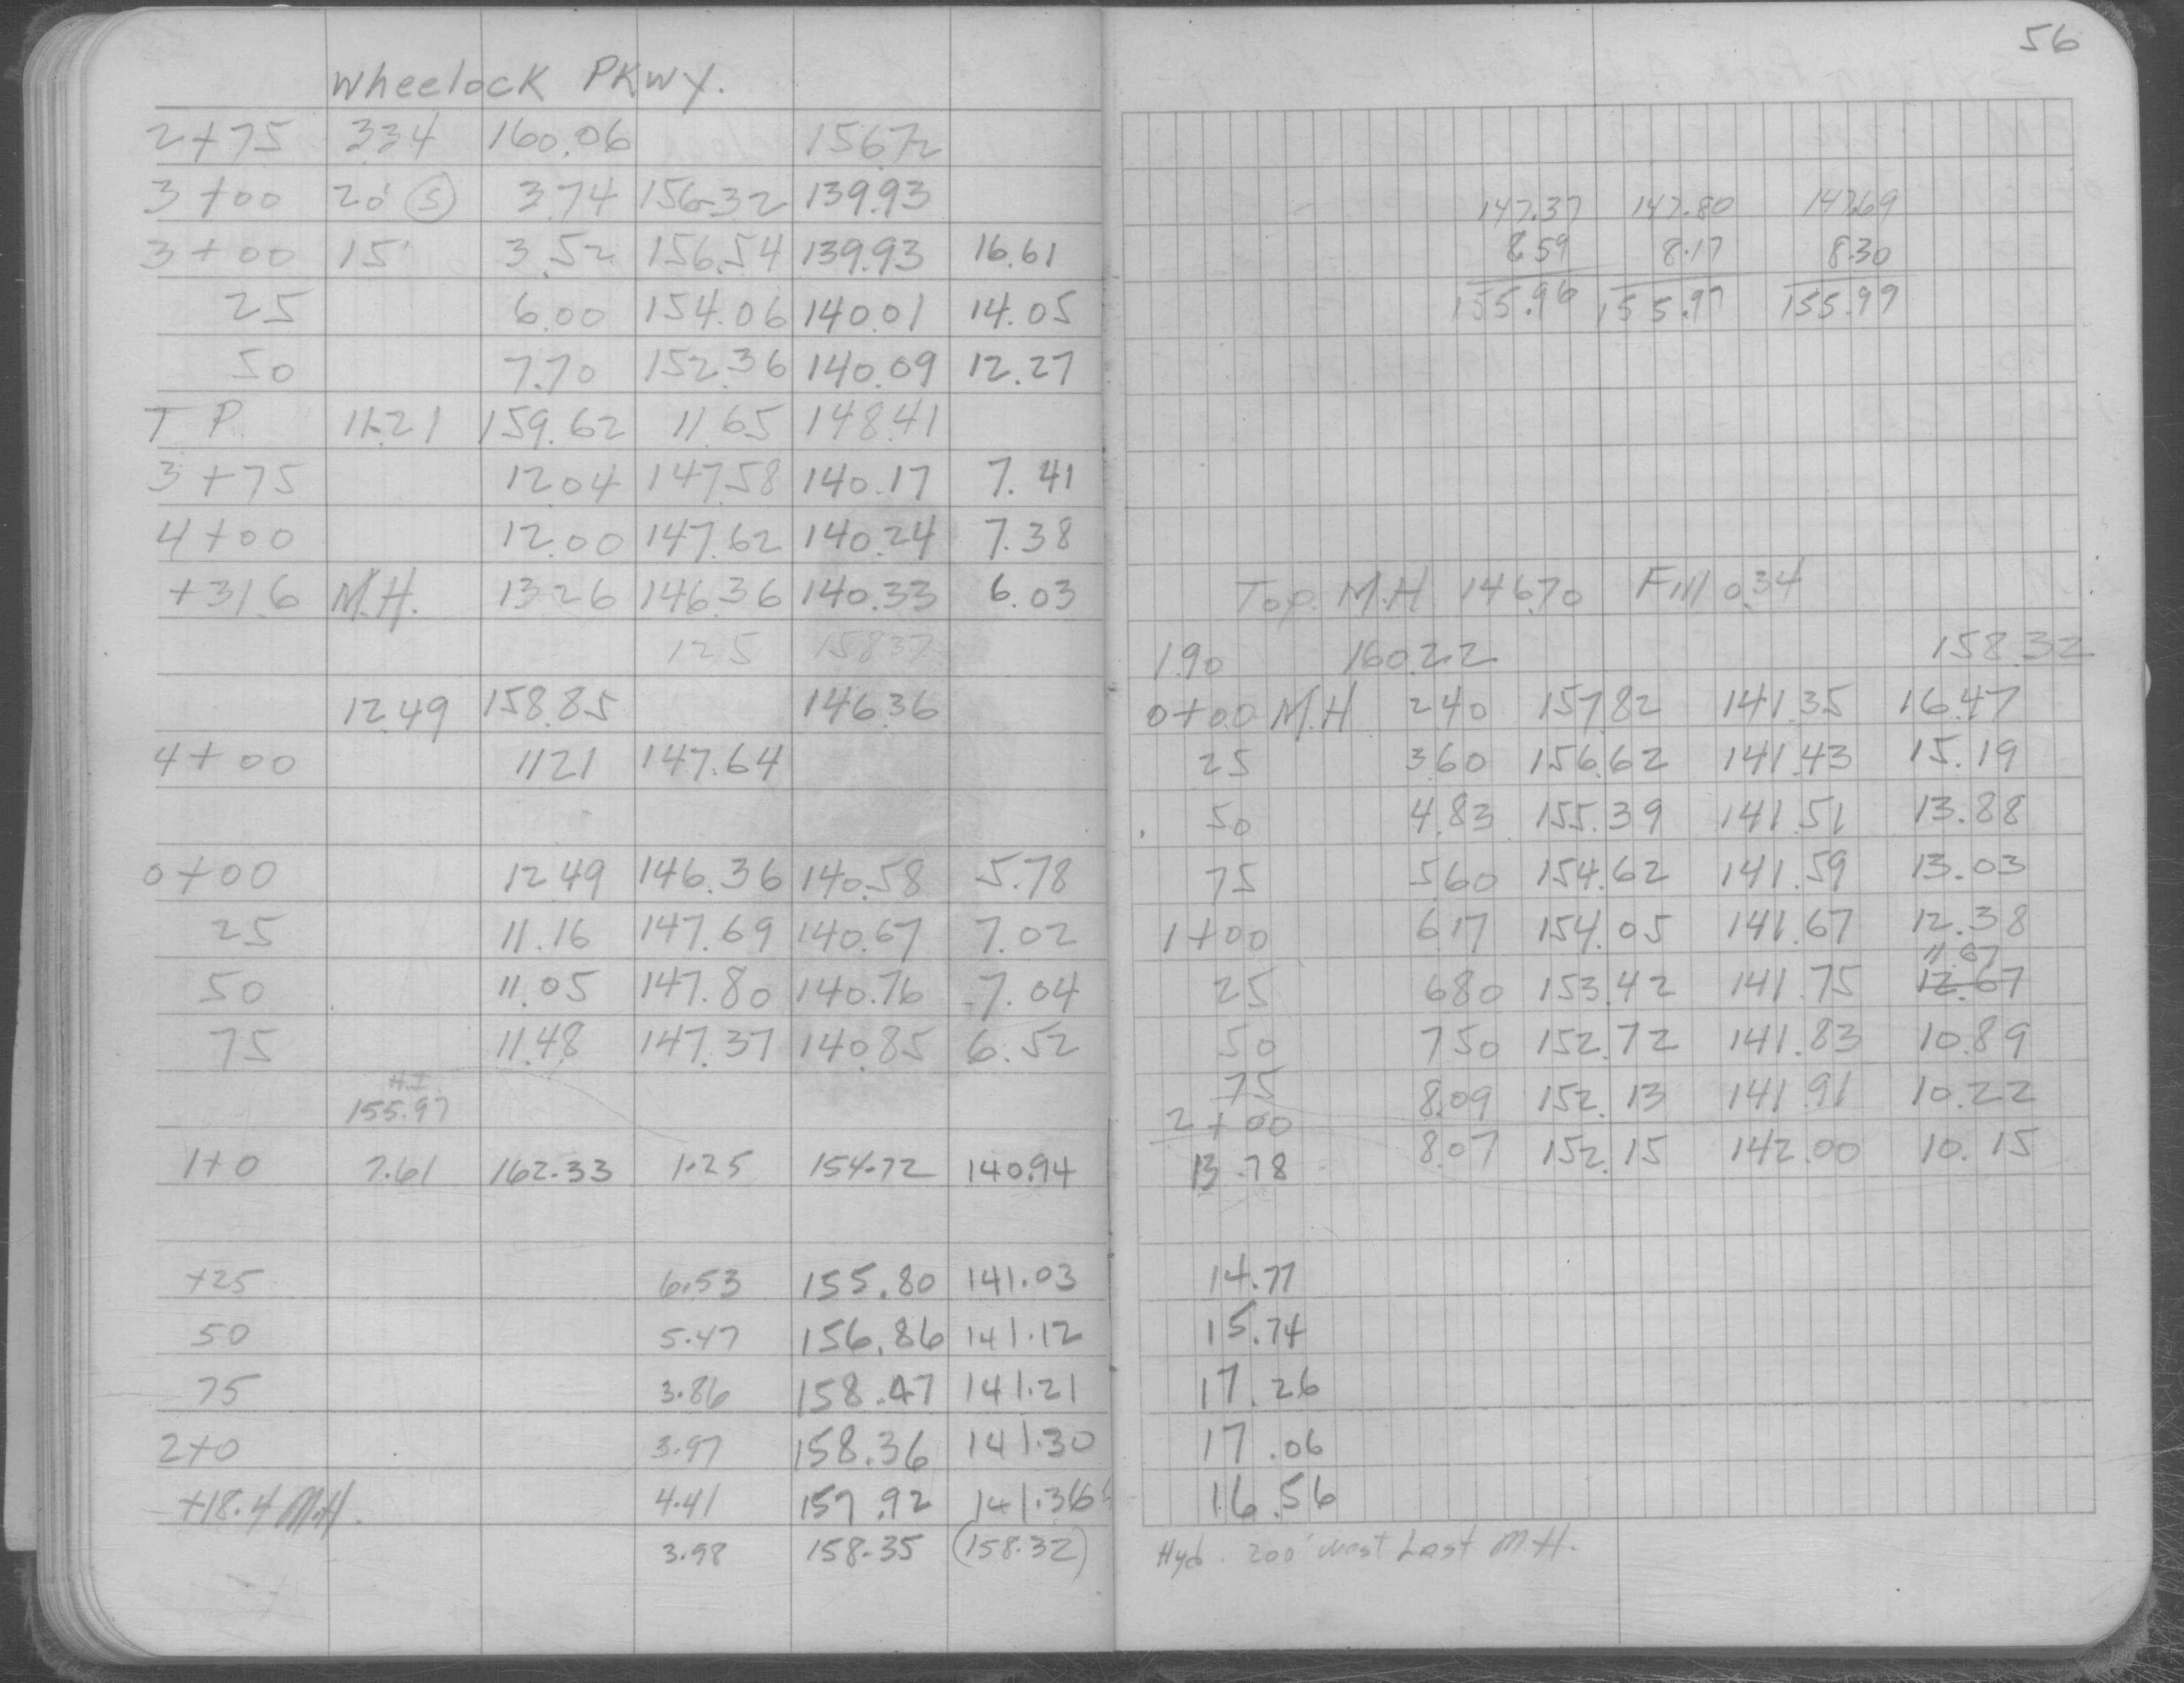 56
Wheelock PKWY.
2+75 334 160.06 156.72
3+00 20' (S) 3.74 156.32 139.93
3+00 15' 3.52 156.54 139.93 16.61
25 6.00 154.06 140.01 14.05
50 7.70 152.36 140.09 12.27
T P. 11.21 159.62 11.65 148.41
3+75 12.04 147.58 140.17 7.41
4+00 12.00 147.62 140.24 7.38
+31.6 M.H. 13.26 146.36 140.33 6.03
12.5 158.37
12.49 158.85 146.36
4+00 11.21 147.64
0+00 12.49 146.36 140.58 5.78
25 11.16 147.69 140.67 7.02
50 11.05 147.80 140.76 7.04
75 11.48 147.37 140.85 6.52
H.I.
155.97
1+0 7.61 162.33 1.25 154.72 140.94
+25 6.53 155.80 141.03
50 5.47 156.86 141.12
75 3.86 158.47 141.21
2+0 3.97 158.36 141.30
+18.4 M.H. 4.41 157.92 141.36
3.98 158.35 (158.32)
147.37 147.80 147.69
8.59 8.17 8.30
155.96 155.97 155.99
Top. M.H 146.70 Fill 0.34
1.90 160.22 158.32
0+00 M.H 2.40 157.82 141.35 16.47
25 3.60 156.62 141.43 15.19
50 4.83 155.39 141.51 13.88
75 5.60 154.62 141.59 13.03
1+00 6.17 154.05 141.67 12.38
11.67
25 6.80 153.42 141.75 12.67
50 7.50 152.72 141.83 10.89
75 8.09 152.13 141.91 10.22
2+00 8.07 152.15 142.00 10.15
13.78
14.77
15.74
17.26
17.06
16.56
Hyd. 200' West Last M.H.